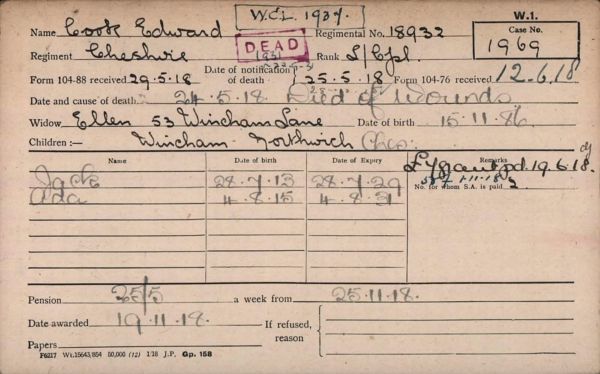 W.C.L. 1937.
W.1.
Name Cook Edward Regimental No. 18932
Case No.
1969
Regiment Cheshire DEAD Rank L/Cpl.
Form 104-88 received 29.5.18 Date of notification of death 25.5.18 Form 104-76 received 12.6.18
Date and cause of death 24.5.18. Died of Wounds.
Widow Ellen 53 Wincham Lane Date of birth 15.11.86
Children :— Wincham Northwich Ches.
Name Date of birth Date of Expiry Remarks
Jack 28.7.13 28.7.29
Ada 4.8.15 4.8.31
pd. 19.6.18.
No. for whom S.A. is paid 2
Pension 25/5 a week from 25.11.18.
Date awarded 19.11.18. If refused, reason
Papers
F6217 Wt.15643/854 50,000 (12) 1/18 J.P. Gp. 158